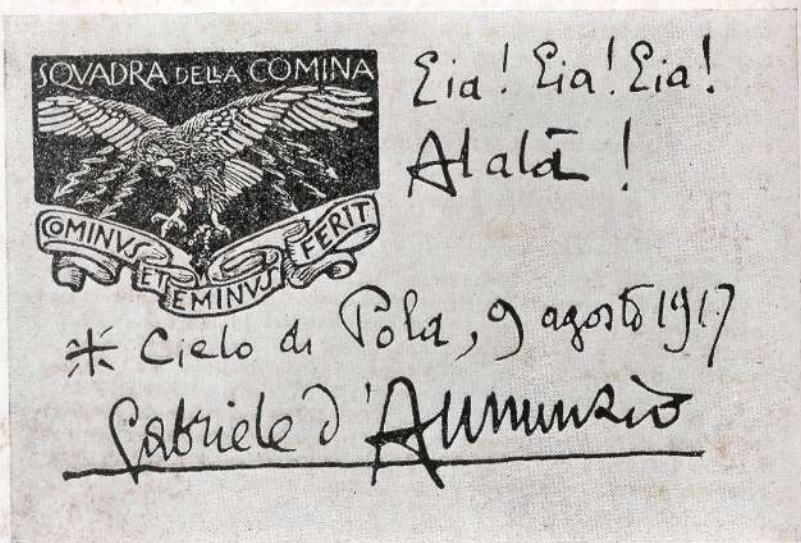 SQVADRA DELLA COMINA
COMINVS
ET
EMINVS
FERIT
Eia! Eia! Eia!
Alalà!
* Cielo di Pola, 9 agosto 1917
Gabriele d'Annunzio